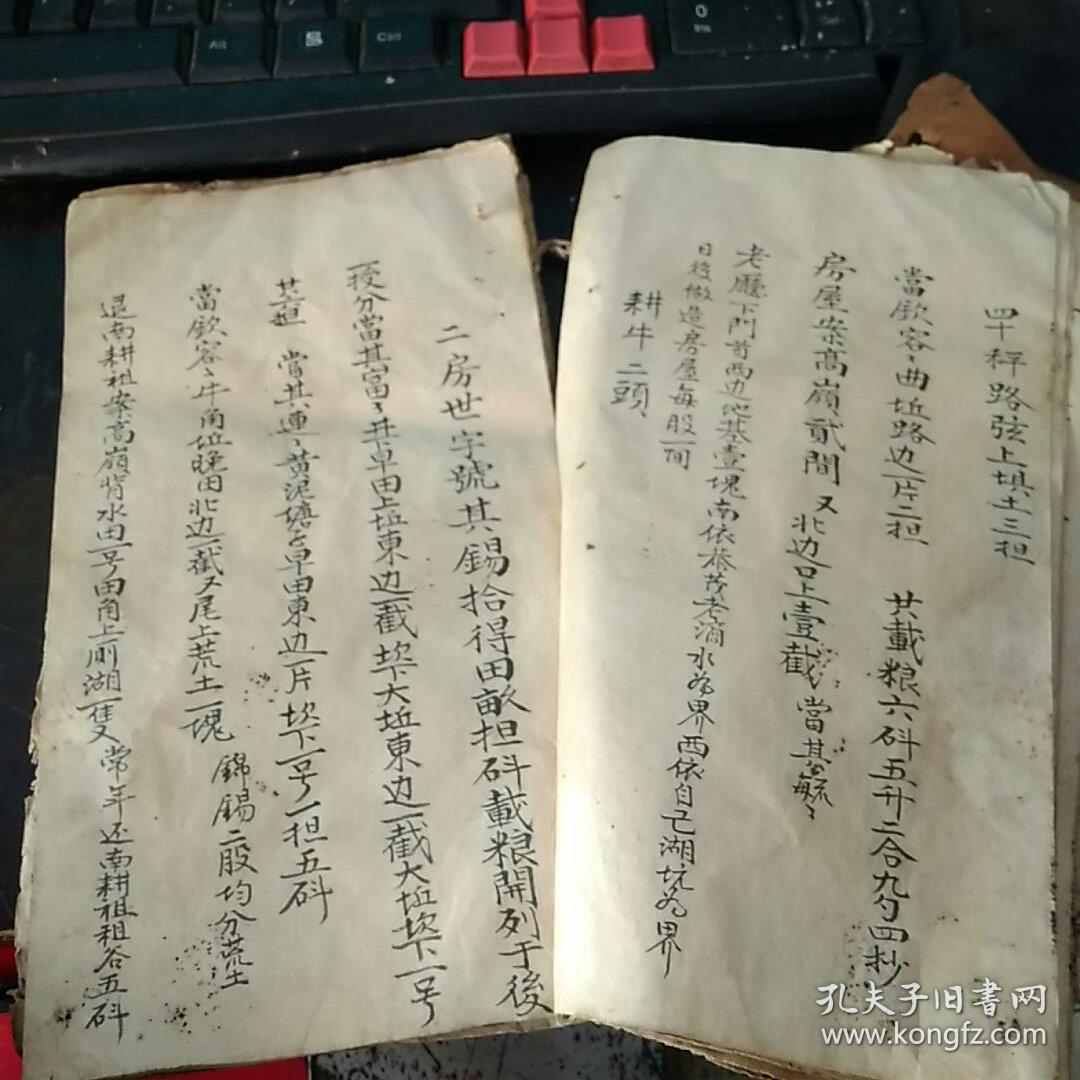 四十秤路弦上填土三担
當欽容〻曲坵路边一片二担 共載粮六斗五升二合九勺四抄
房屋案高嶺貳間 又北边口上壹截 當其毓〻
老廳下門首西边地基壹塊南依恭茂老滴水為界西依自己湖坑为界
日後做造房屋每股一间
耕牛二頭、
二房世字號其錫拾得田畝担斗載粮開列于後
一授分當其富〻井早田上坵東边一截坎下大坵東边一截大坵坎下一号
共担 當其連〻黄泥塘早田東边一片坎下一号一担五斗
當欽容〻牛角坵晚田北边一截又尾上荒土一塊 錦錫二股均分荒土
退南耕祖案高嶺背水田一号田角上厠湖一隻 常年还南耕祖租谷五斗
孔夫子旧書网
www.kongfz.com
Alt
Ctrl
0
Ins